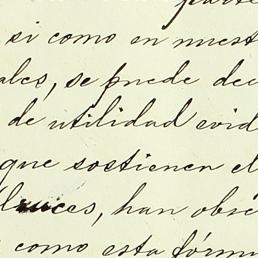 parte
si como en nuest
ales, se puede dec
de utilidad evid
que sostienen el
luces, han obse
como esta fórmu